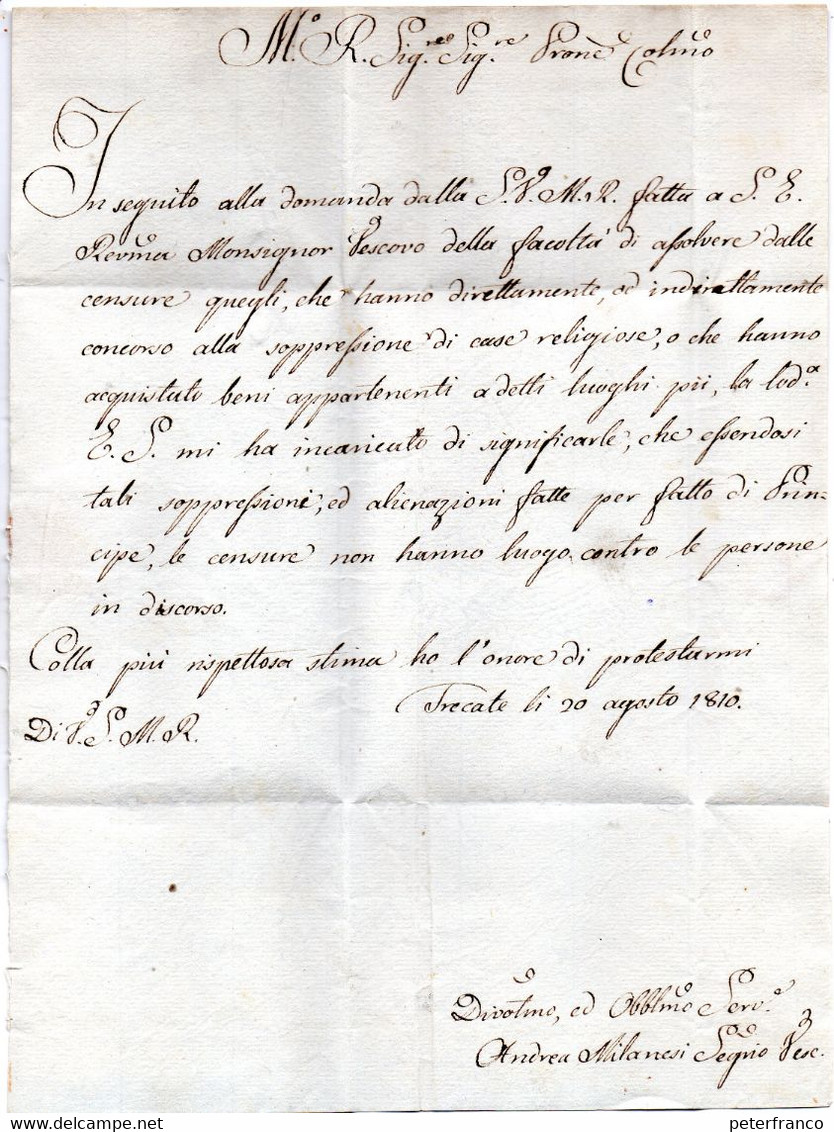 M.º R. Sig.re Sig.re Prone Colmo
In seguito alla domanda dalla S.V. M. R. fatta a S. E.
Revma Monsignor Vescovo della facoltà di assolvere dalle
censure quegli, che hanno direttamente, od indirettamente
concorso alla soppressione di case religiose, o che hanno
acquistato beni appartenenti a detti luoghi pii, la lod.a
E. S. mi ha incaricato di significarle, che essendosi
tali soppressioni, ed alienazioni fatte per fatto di Prin-
cipe, le censure non hanno luogo contro le persone
in discorso.
Colla più rispettosa stima ho l'onore di protestarmi
Trecate li 20 agosto 1810.
Di V. S. M. R.
Divotmo, ed Obblmo Serv.e
Andrea Milanesi Segrio Vesc.
peterfranco